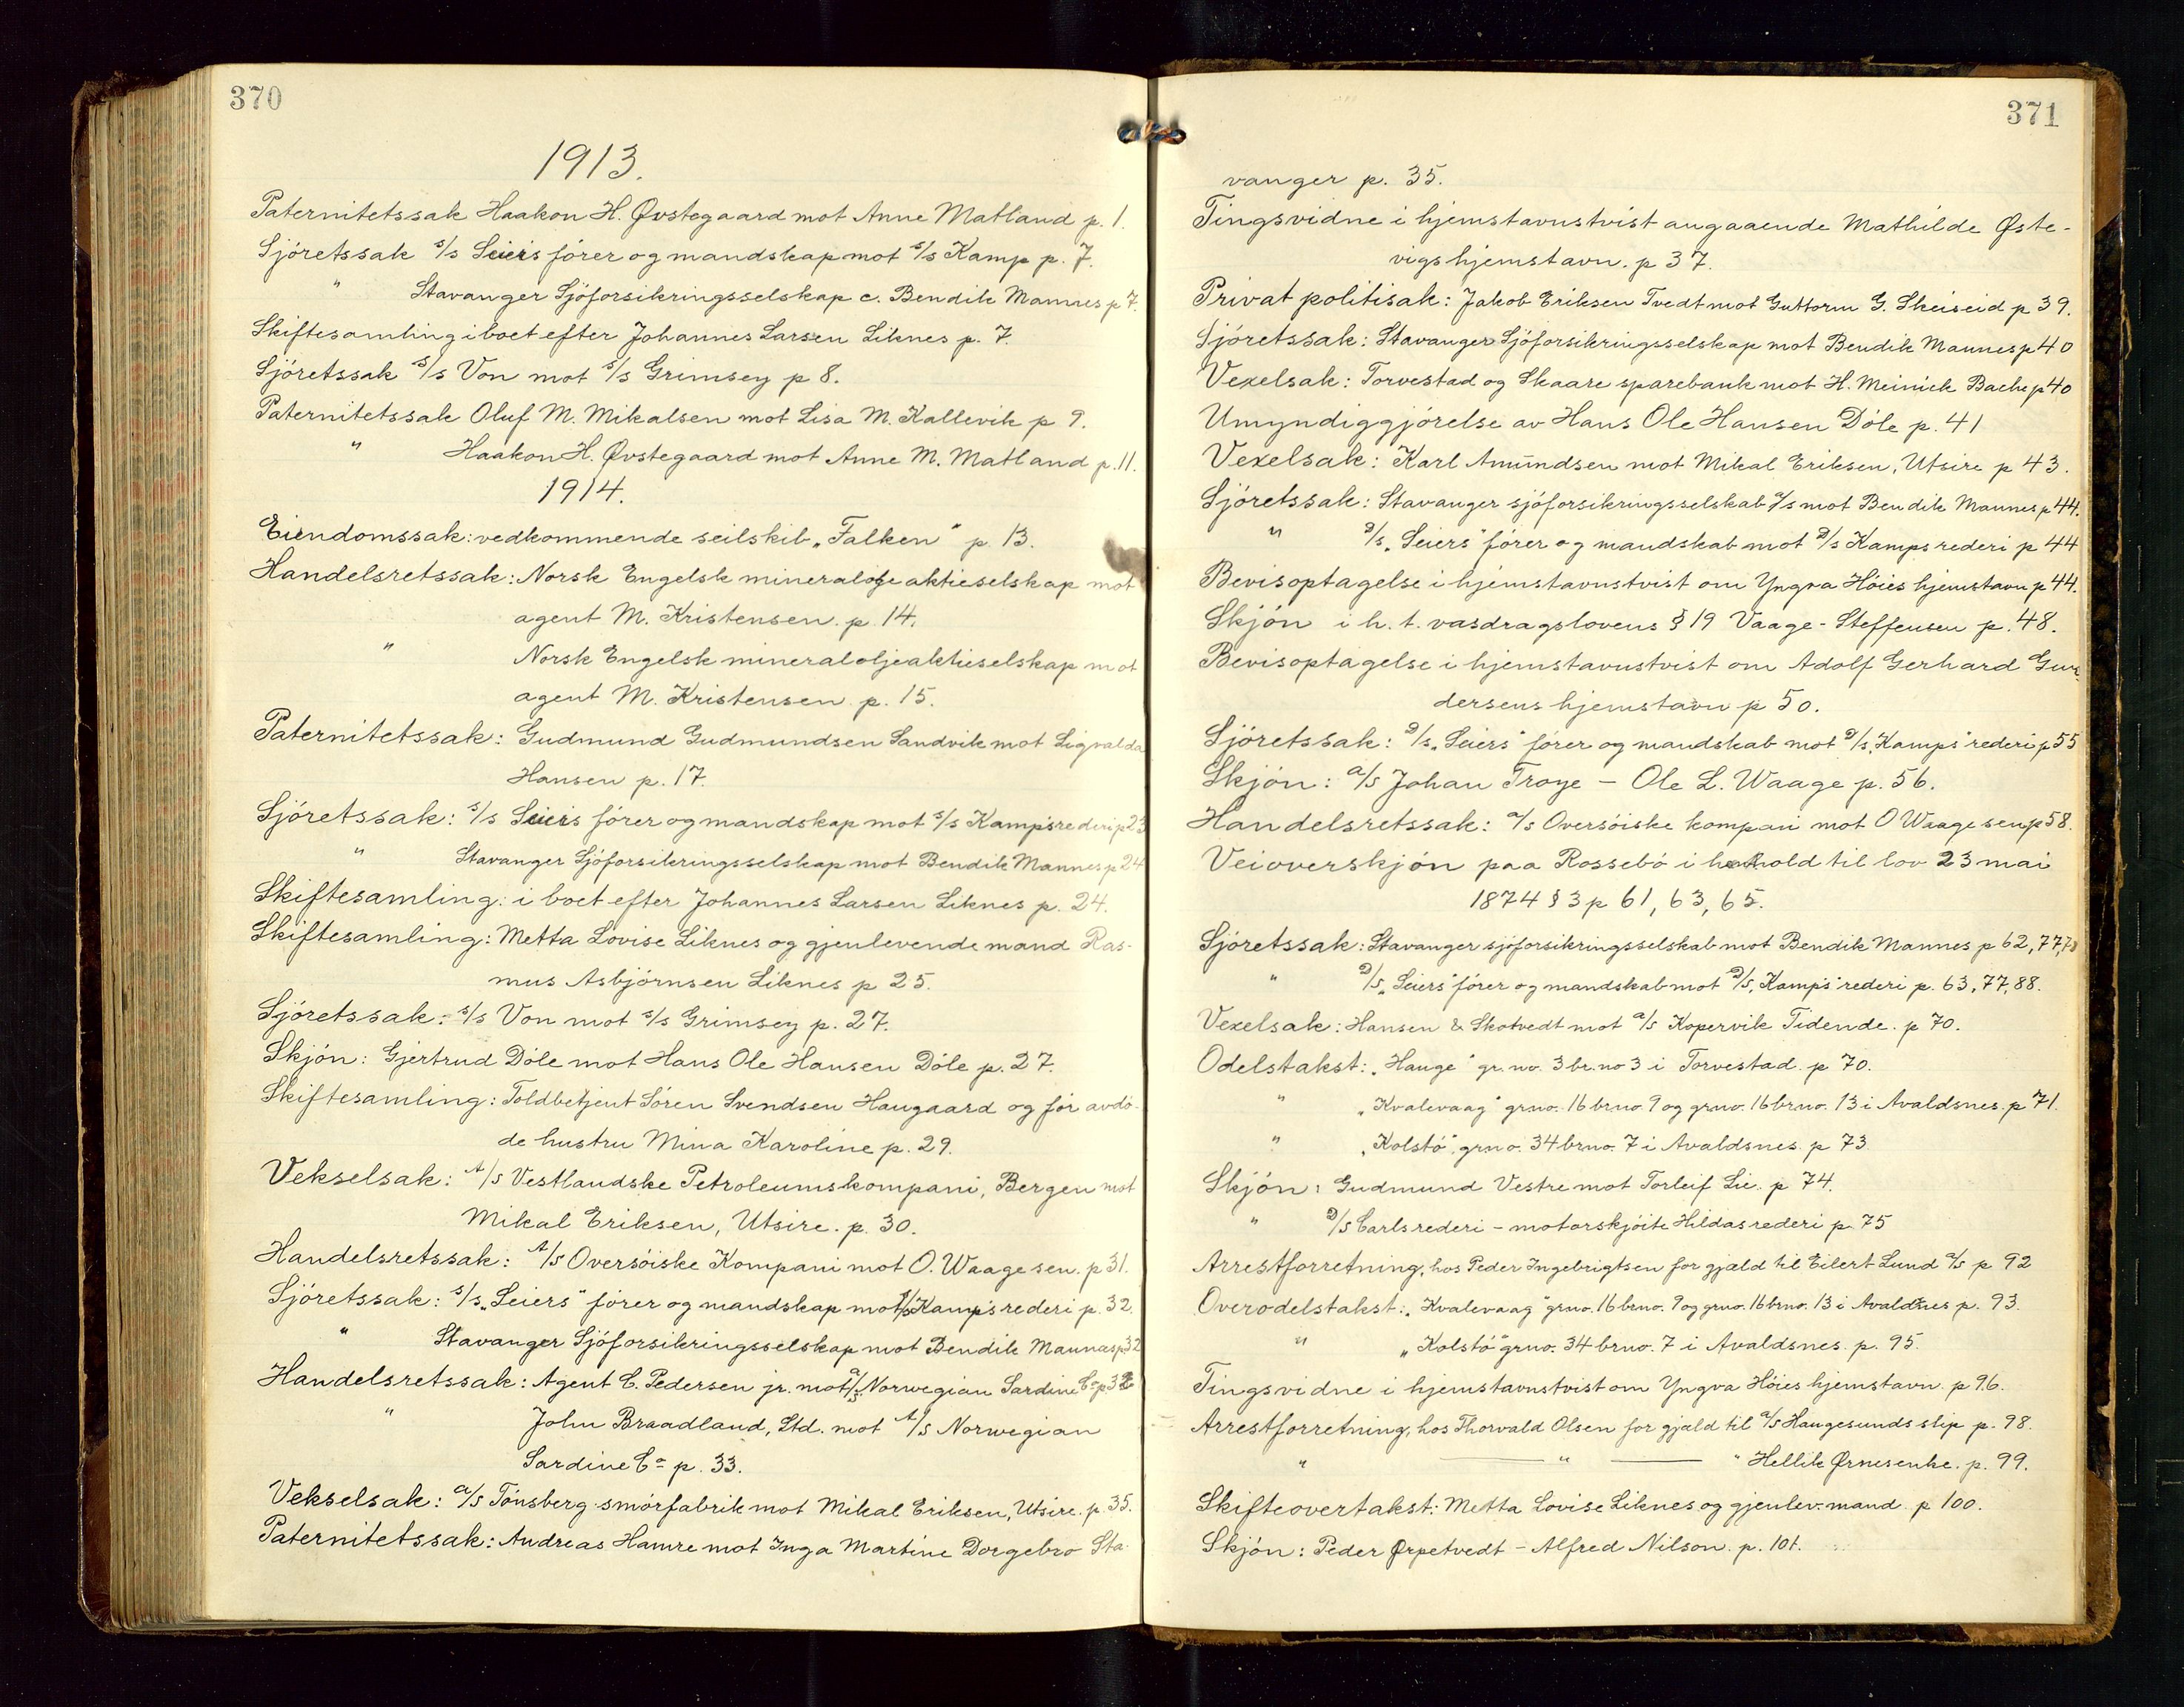 370
1913.
Paternitetssak Haakon H. Øvstegaard mot Anne Matland p. 1.
Sjóretssak s/s Seiers fórer og mandskap mot s/s Kamp p. 7.
" Stavanger Sjóforsikringsselskap c. Bendik Mannes p 7.
Skiftesamling i boet efter Johannes Larsen Liknes p. 7.
Sjóretssak s/s Von mot s/s Grimsey p 8.
Paternitetssak Oluf M. Mikalsen mot Lisa M. Kallevik p 9.
" Haakon H. Øvstegaard mot Anne M. Matland p. 11.
1914.
Eiendomssak: vedkommende seilskib „Falken" p. 13.
Handelsretssak: Norsk Engelsk mineralolje aktieselskap mot
agent M. Kristensen. p. 14.
" Norsk Engelsk mineraloljeaktieselskap mot
agent M. Kristensen p. 15.
Paternitetssak: Gudmund Gudmundsen Sandvik mot Sigvalda
Hansen p. 17.
Sjóretssak: s/s Seiers fórer og mandskap mot s/s Kamp's rederi p 23
" Stavanger Sjóforsikringsselskap mot Bendik Mannes p 24
Skiftesamling: i boet efter Johannes Larsen Liknes p. 24.
Skiftesamling: Metta Lovise Liknes og gjenlevende mand Ras-
mus Asbjórnsen Liknes p 25.
Sjóretssak: s/s Von mot s/s Grimsey p. 27.
Skjón: Gjertrud Dóle mot Hans Ole Hansen Dóle p. 27.
Skiftesamling: Toldbetjent Sóren Svendsen Haugaard og fór avdó-
de hustru Mina Karoline p. 29.
Vekselsak: A/S Vestlandske Petroleumskompani, Bergen mot
Mikal Eriksen, Utsire. p. 30.
Handelsretssak: A/S Oversóiske Kompani mot O. Waage sen. p 31.
Sjóretssak: s/s „Seiers" fórer og mandskap mot s/s Kamp's rederi p. 32.
" Stavanger Sjóforsikringsselskap mot Bendik Mannes p 32
Handelsretssak: Agent C. Pedersen jr. mot a/s Norwegian Sardine Co p 32
" John Braadland, Ltd. mot A/S Norwegian
Sardine Co p. 33.
Vekselsak: a/s Tónsberg smórfabrik mot Mikal Eriksen, Utsire. p. 35.
Paternitetssak: Andreas Hamre mot Inga Martine Dorgebro Sta-
371
vanger p. 35.
Tingsvidne i hjemstavnstvist angaaende Mathilde Øste-
vigs hjemstavn. p 37.
Privat politisak: Jakob Eriksen Tvedt mot Guttorm G. Skeiseid p 39.
Sjóretssak: Stavanger Sjóforsikringsselskap mot Bendik Mannes p 40
Vexelsak: Torvestad og Skaare sparebank mot H. Meinick Bache p 40
Umyndiggjórelse av Hans Ole Hansen Dóle p. 41
Vexelsak: Karl Amundsen mot Mikal Eriksen, Utsire p 43.
Sjóretssak: Stavanger sjóforsikringsselskab a/s mot Bendik Mannes p 44.
" D/s „Seiers" fórer og mandskab mot D/s Kamps rederi p 44
Bevisoptagelse i hjemstavnstvist om Yngva Hóies hjemstavn p 44.
Skjón i h. t. vasdragslovens § 19 Vaage - Steffensen p. 48.
Bevisoptagelse i hjemstavnstvist om Adolf Gerhard Gun-
dersens hjemstavn p 50.
Sjóretssak: D/s „Seiers" fórer og mandskab mot D/s „Kamps" rederi p 55
Skjón: a/s Johan Troye - Ole L. Waage p. 56.
Handelsretssak: a/s Oversóiske kompani mot O Waage sen p 58.
Veioverskjón paa Rossebó i henhold til lov 23 mai
1874 § 3 p 61, 63, 65.
Sjóretssak: Stavanger sjóforsikringsselskab mot Bendik Mannes p 62, 77,
" D/s „Seiers" fórer og mandskab mot D/s „Kamps" rederi p. 63, 77, 88.
Vexelsak: Hansen & Skotvedt mot a/s Kopervik Tidende. p 70.
Odelstakst: „Hauge" gr. no. 3 br. no 3 i Torvestad. p 70.
" „Kvalevaag" grno. 16 brno. 9 og grno. 16 brno. 13 i Avaldsnes. p 71.
" „Kolstó" grno. 34 brno. 7 i Avaldsnes. p 73
Skjón: Gudmund Vestre mot Torleif Lie. p 74.
" D/s Carls rederi - motorskjóite Hildas rederi p. 75
Arrestforretning, hos Peder Ingebrigtsen for gjæld til Eilert Lund a/s p 92
Overodelstakst: „Kvalevaag" grno. 16 brno. 9 og grno. 16 brno. 13 i Avaldsnes p. 93.
" „Kolstó" grno. 34 brno. 7 i Avaldsnes. p. 95.
Tingsvidne i hjemstavnstvist om Yngva Hóies hjemstavn. p 96.
Arrestforretning, hos Thorvald Olsen for gjæld til a/s Haugesunds slip p. 98.
" — " — " Hellik Ørnesenke. p. 99.
Skifteovertakst: Metta Lovise Liknes og gjenlev. mand. p 100.
Skjón: Peder Ørpetvedt - Alfred Nilson. p. 101.